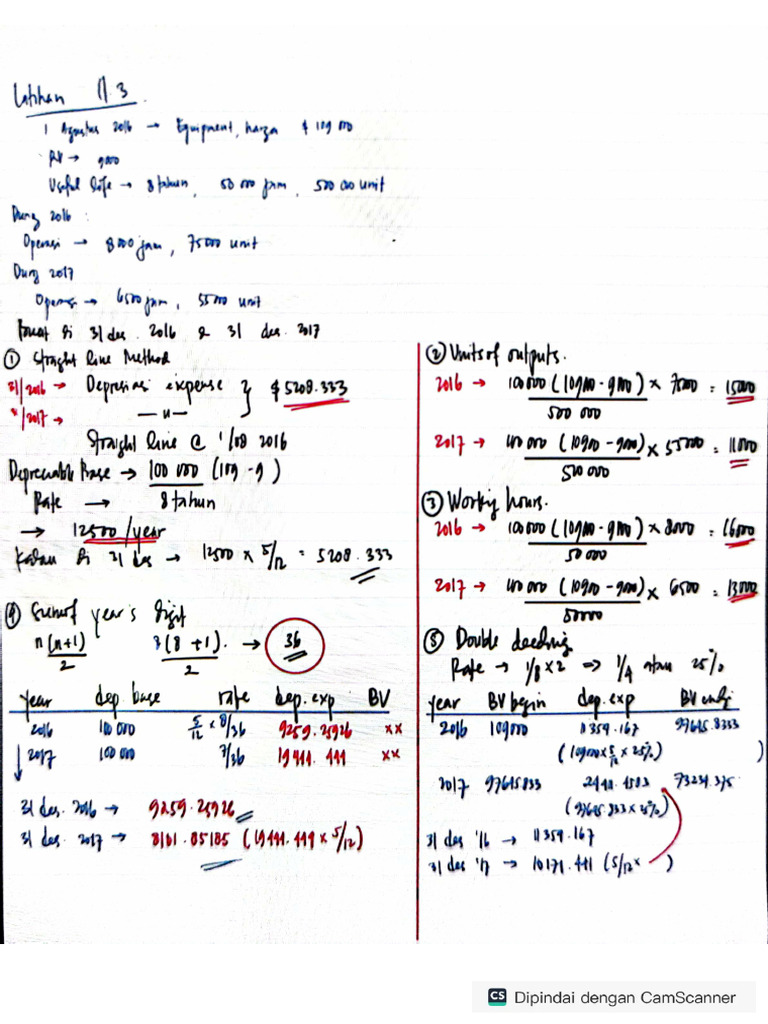 Latihan 11.3
1 Agustus 2016 → Equipment, harga $ 109 000
RV → 9000
Useful life → 8 tahun, 50 000 jam, 500 000 unit
During 2016 :
Operasi → 8000 jam, 75000 unit
During 2017
Operasi → 6500 jam, 55000 unit
di 31 des. 2016 & 31 des. 2017
① Straight line Method
31/2016 → Depresiasi expense } $ 5208.333
31/2017 → — u —
Straight line @ 1/08 2016
Depreciable Base → 100 000 (109 - 9)
Rate → 8 tahun
→ 12500/year
di 31 des → 12500 x 5/12 = 5208.333
② Units of outputs.
2016 → 100 000 (109000 - 9000) x 75000 = 15000
500 000
2017 → 100 000 (109000 - 9000) x 55000 = 11000
500 000
③ Working hours.
2016 → 100 000 (109000 - 9000) x 8000 = 16000
50 000
2017 → 100 000 (109000 - 9000) x 6500 = 13000
50000
④ Sum of year's digit
n(n+1) 8(8+1). → 36
2 2
year dep base rate dep. exp BV
2016 100 000 5/12 x 8/36 9259.25926 xx
2017 100 000 7/36 19444.444 xx
31 des. 2016 → 9259.25926
31 des. 2017 → 8101.85185 (19444.444 x 5/12)
⑤ Double declining
Rate → 1/8 x 2 => 1/4 atau 25%
year BV begin dep. exp BV ending
2016 109000 11354.167 97645.8333
(109000 x 5/12 x 25%) )
2017 97645.833 24411.4583 73234.375
(97645.833 x 25%)
31 des '16 → 11354.167
31 des '17 → 10171.441 (5/12 x )
CS Dipindai dengan CamScanner